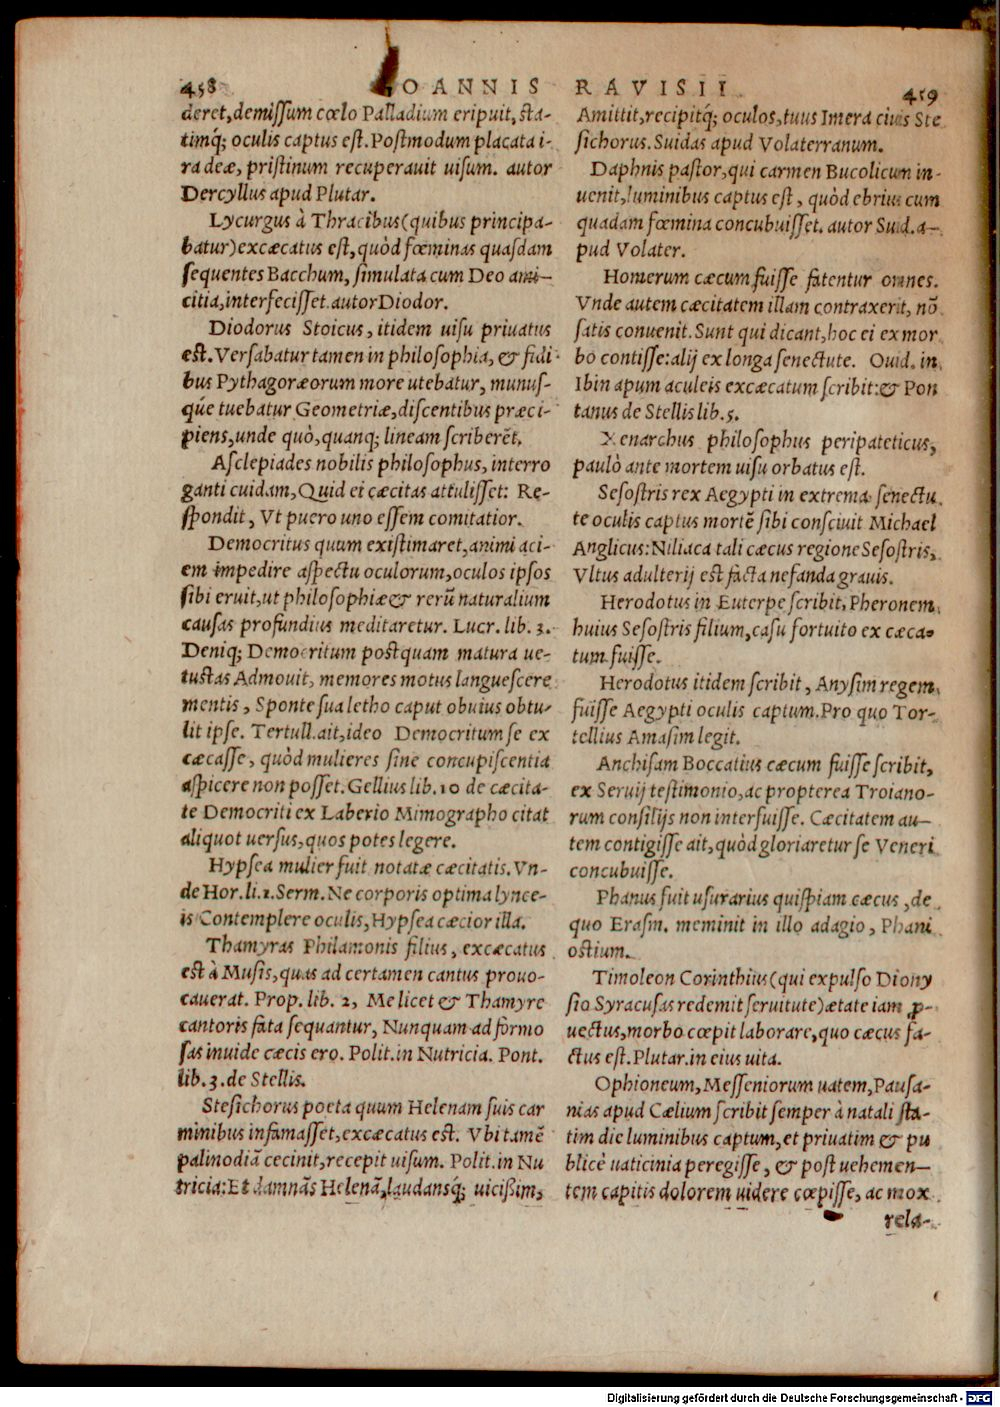 458 IOANNIS RAVISII 459
deret, demissum cœlo Palladium eripuit, sta-
timq́; oculis captus est. Postmodum placata i-
ra deæ, pristinum recuperauit uisum. autor
Dercyllus apud Plutar.
Lycurgus à Thracibus (quibus principa-
batur) excæcatus est, quòd fœminas quasdam
sequentes Bacchum, simulata cum Deo ami-
citia, interfecisset. autor Diodor.
Diodorus Stoicus, itidem uisu priuatus
est. Versabatur tamen in philosophia, & fidi
bus Pythagoræorum more utebatur, munus-
qúe tuebatur Geometriæ, discentibus præci-
piens, unde quò, quanq; lineam scriberēt.
Asclepiades nobilis philosophus, interro
ganti cuidam, Quid ei cæcitas attulisset: Re-
spondit, Vt puero uno essem comitatior.
Democritus quum existimaret, animi aci-
em impedire aspectu oculorum, oculos ipsos
sibi eruit, ut philosophiæ & rerū naturalium
causas profundius meditaretur. Lucr. lib. 3.
Deniq; Democritum postquam matura ue-
tustas Admouit, memores motus languescere
mentis, Sponte sua letho caput obuius obtu-
lit ipse. Tertull. ait, ideo Democritum se ex
cæcasse, quòd mulieres sine concupiscentia
aspicere non posset. Gellius lib. 10 de cæcita-
te Democriti ex Laberio Mimographo citat
aliquot uersus, quos potes legere.
Hypsea mulier fuit notatæ cæcitatis. Vn-
de Hor. li. 1. Serm. Ne corporis optima lynce-
is Contemplere oculis, Hypsea cæcior illa.
Thamyras Philamonis filius, excæcatus
est à Musis, quas ad certamen cantus prouo-
cauerat. Prop. lib. 2, Me licet & Thamyre
cantoris fata sequantur, Nunquam ad formo
sas inuide cæcis ero. Polit. in Nutricia. Pont.
lib. 3. de Stellis.
Stesichorus poeta quum Helenam suis car
minibus infamasset, excæcatus est. Vbi tamē
palinodiā cecinit, recepit uisum. Polit. in Nu
tricia: Et damnās Helenā, laudansq́; uicißim,
Amittit, recipitq́; oculos, tuus Imera ciuis Ste
sichorus. Suidas apud Volaterranum.
Daphnis pastor, qui carmen Bucolicum in-
uenit, luminibus captus est, quòd ebrius cum
quadam fœmina concubuisset. autor Suid. a-
pud Volater.
Homerum cæcum fuisse fatentur omnes.
Vnde autem cæcitatem illam contraxerit, nō
satis conuenit. Sunt qui dicant, hoc ei ex mor
bo contisse: alij ex longa senectute. Ouid. in
Ibin apum aculeis excæcatum scribit: & Pon
tanus de Stellis lib. 5.
Xenarchus philosophus peripateticus,
paulò ante mortem uisu orbatus est.
Sesostris rex Aegypti in extrema senectu
te oculis captus mortē sibi consciuit Michael
Anglicus: Niliaca tali cæcus regione Sesostris,
Vltus adulterij est facta nefanda grauis.
Herodotus in Euterpe scribit, Pheronem
huius Sesostris filium, casu fortuito ex cæca-
tum fuisse.
Herodotus itidem scribit, Anysim regem
fuisse Aegypti oculis captum. Pro quo Tor-
tellius Amasim legit.
Anchisam Boccatius cæcum fuisse scribit,
ex Seruij testimonio, ac propterea Troiano-
rum consilijs non interfuisse. Cæcitatem au-
tem contigisse ait, quòd gloriaretur se Veneri
concubuisse.
Phanus fuit usurarius quispiam cæcus, de
quo Erasm. meminit in illo adagio, Phani
ostium.
Timoleon Corinthius (qui expulso Diony
sio Syracusas redemit seruitute) ætate iam ꝓ-
uectus, morbo cœpit laborare, quo cæcus fa-
ctus est. Plutar. in eius uita.
Ophioneum, Messeniorum uatem, Pausa-
nias apud Cælium scribit semper à natali sta-
tim die luminibus captum, et priuatim & pu
blicè uaticinia peregisse, & post uehemen-
tem capitis dolorem uidere cœpisse, ac mox
rela-
Digitalisierung gefördert durch die Deutsche Forschungsgemeinschaft - DFG